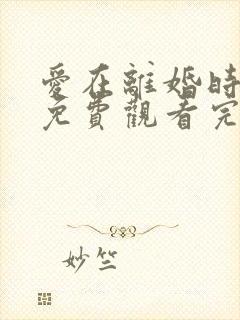 愛在離婚時
免費觀看完
妙竺